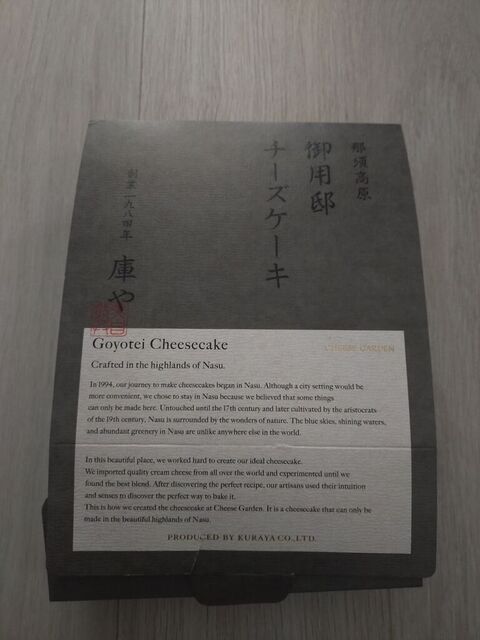 那須高原
御用邸
チーズケーキ
創業一九八四年
庫や
Goyotei Cheesecake
CHEESE GARDEN
Crafted in the highlands of Nasu.
In 1994, our journey to make cheesecakes began in Nasu. Although a city setting would be
more convenient, we chose to stay in Nasu because we believed that some things
can only be made here. Untouched until the 17th century and later cultivated by the aristocrats
of the 19th century, Nasu is surrounded by the wonders of nature. The blue skies, shining waters,
and abundant greenery in Nasu are unlike anywhere else in the world.
In this beautiful place, we worked hard to create our ideal cheesecake.
We imported quality cream cheese from all over the world and experimented until we
found the best blend. After discovering the perfect recipe, our artisans used their intuition
and senses to discover the perfect way to bake it.
This is how we created the cheesecake at Cheese Garden. It is a cheesecake that can only be
made in the beautiful highlands of Nasu.
PRODUCED BY KURAYA CO., LTD.